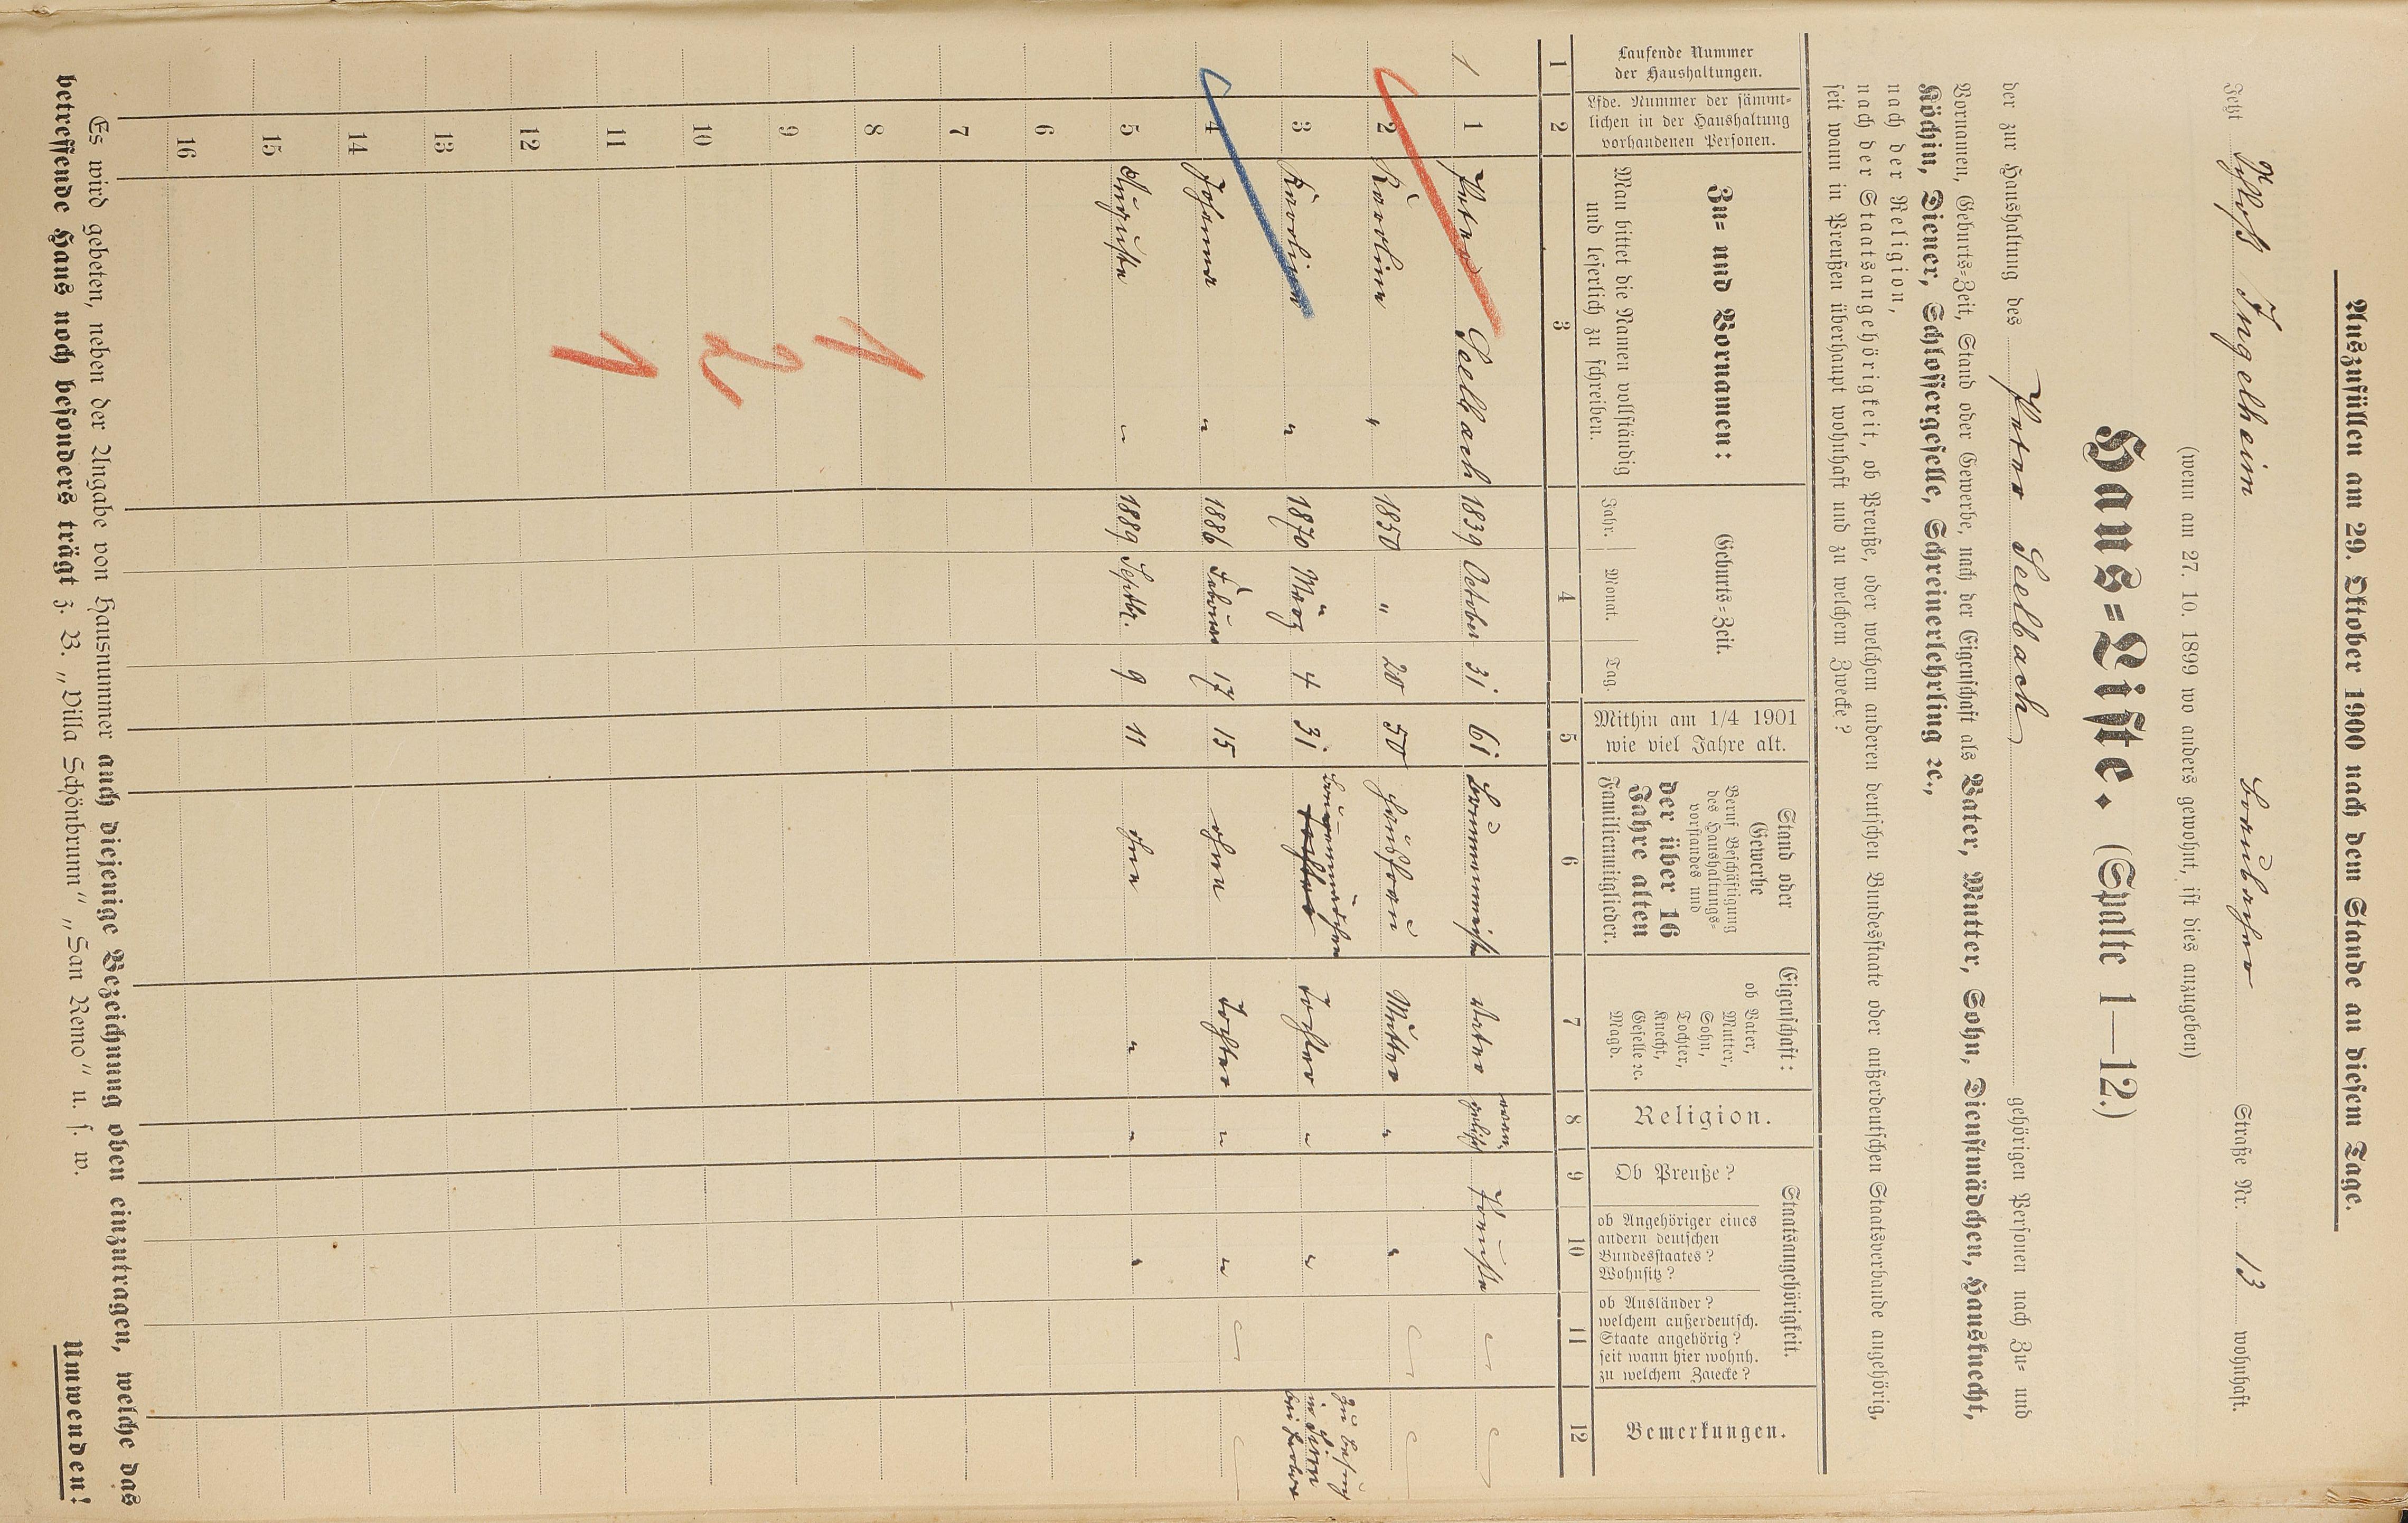 Auszufüllen am 29. Oktober 1900 nach dem Stande an diesem Tage.
Jetzt Schloß Ingelheim Straße Nr. 13 wohnhaft.
(wenn am 27. 10. 1899 wo anders gewohnt, ist dies anzugeben)
Haus=Liste. (Spalte 1—12.)
der zur Haushaltung des Peter Seelbach gehörigen Personen nach Zu= und
Vornamen, Geburts=Zeit, Stand oder Gewerbe, nach der Eigenschaft als Vater, Mutter, Sohn, Dienstmädchen, Hausknecht,
Köchin, Diener, Schlossergeselle, Schreinerlehrling ꝛc.,
nach der Religion,
nach der Staatsangehörigkeit, ob Preuße, oder welchem anderen deutschen Bundesstaate oder außerdeutschen Staatsverbande angehörig,
seit wann in Preußen überhaupt wohnhaft und zu welchem Zwecke?
Laufende Nummer
der Haushaltungen.
Lfde. Nummer der sämmt=
lichen in der Haushaltung
vorhandenen Personen.
Zu= und Vornamen:
Man bittet die Namen vollständig
und leserlich zu schreiben.
Geburts=Zeit.
Jahr. Monat. Tag.
Mithin am 1/4 1901
wie viel Jahre alt.
Stand oder
Gewerbe
Beruf Beschäftigung
des Haushaltungs=
vorstandes und
der über 16
Jahre alten
Familienmitglieder.
Eigenschaft:
ob Vater,
Mutter,
Sohn,
Tochter,
Knecht,
Geselle ꝛc.
Magd.
Religion.
Staatsangehörigkeit.
Ob Preuße?
ob Angehöriger eines
andern deutschen
Bundesstaates?
Wohnsitz?
ob Ausländer?
welchem außerdeutsch.
Staate angehörig?
seit wann hier wohnh.
zu welchem Zwecke?
Bemerkungen.
1 2 3 4 5 6 7 8 9 10 11 12
1 1 Peter Seelbach 1839 October 31 61 Vater evan=gelisch Preuße
2 Karolina " 1850 " 20 50 Hausfrau Mutter " "
3 Karolina " 1870 März 4 31 Tochter Tochter " " zu Besuch
4 Johanna " 1886 Februar 17 15 ohne Tochter " "
5 Auguste " 1889 Septbr. 9 11 ohne " " "
6
7
8 1
9
10 2
11 1
12
13
14
15
16
Es wird gebeten, neben der Angabe von Hausnummer auch diejenige Bezeichnung oben einzutragen, welche das
betreffende Haus noch besonders trägt z. B. „Villa Schönbrunn" „San Remo" u. s. w.
Umwenden!